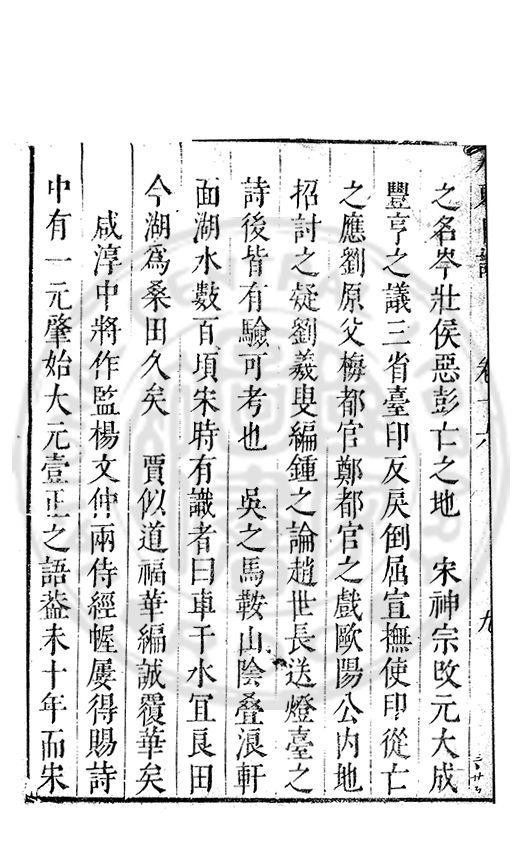 之名岑壯侯惡彭亡之地　宋神宗改元大成
豐亨之議三省臺印反戾倒屈宣撫使印從亡
之應劉原父梅都官鄭都官之戲歐陽公內地
招討之疑劉羲叟編鍾之論趙世長送燈臺之
詩後皆有驗可考也　吳之馬鞍山陰疊浪軒
面湖水數百頃宋時有識者曰卓干水冝良田
今湖爲桑田久矣　賈似道福華編誠覆華矣
咸淳中將作監楊文仲兩侍經幄屢得賜詩
中有一元肇始大元壹正之語葢未十年而宋
卷十六
九